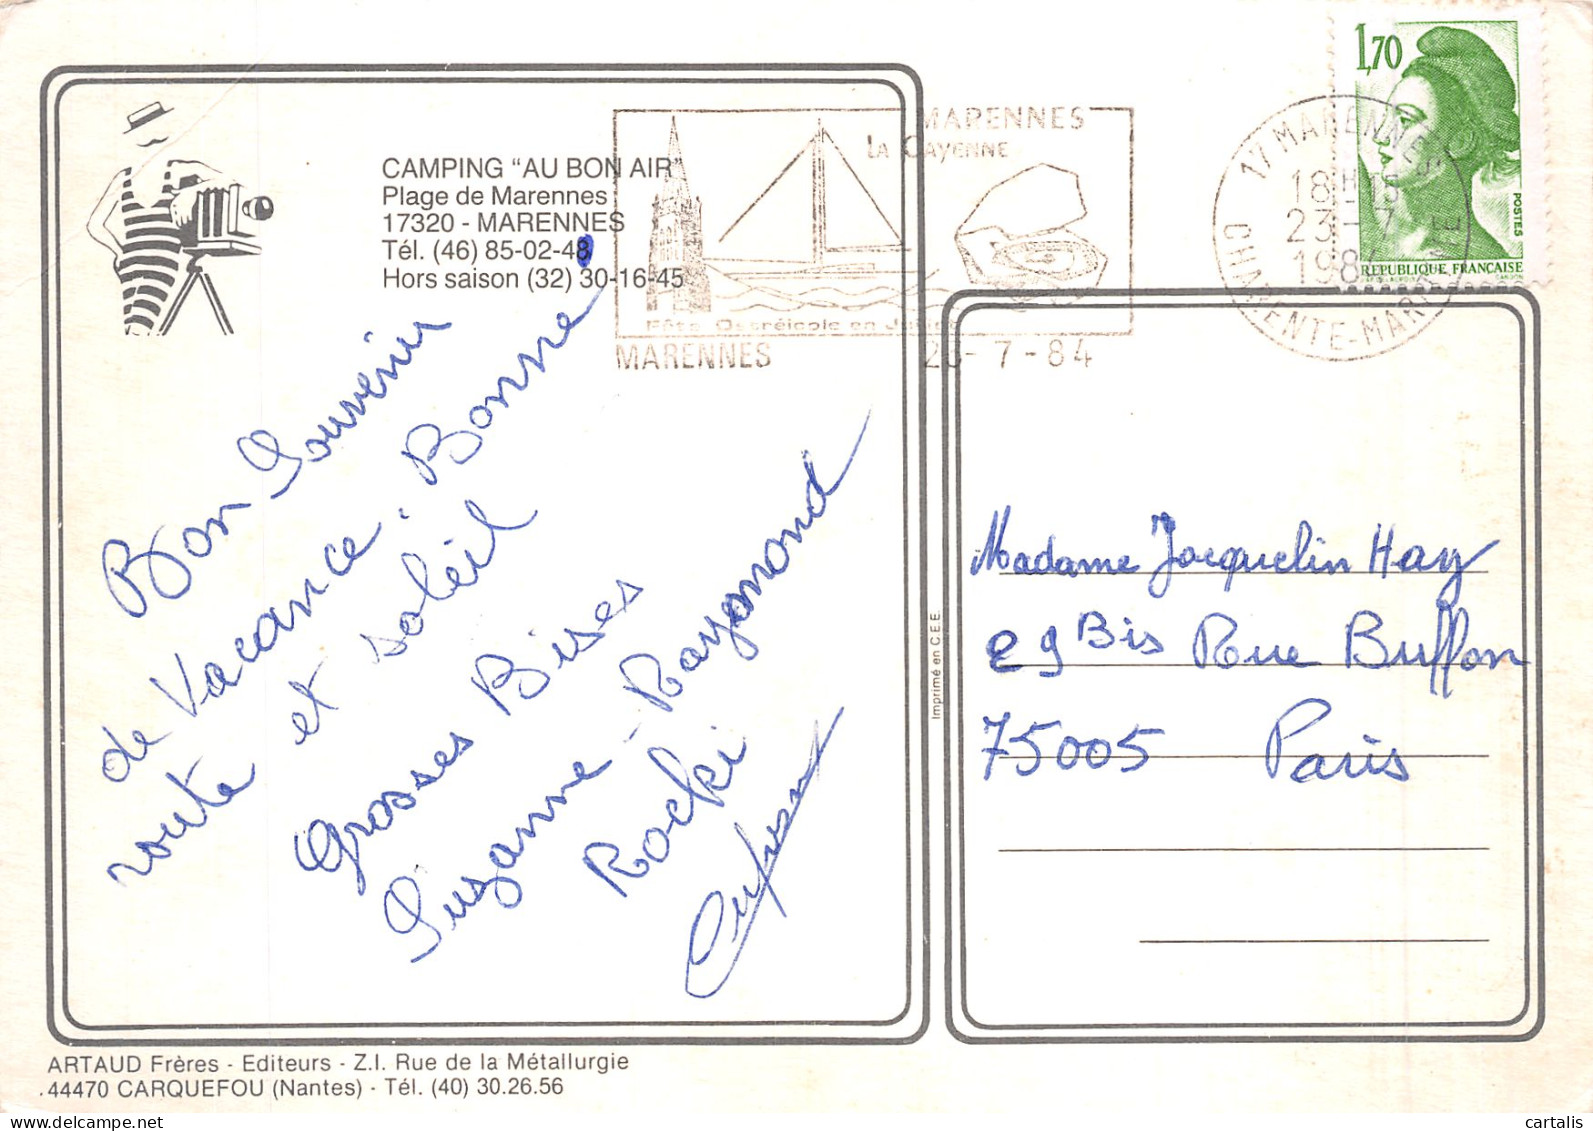 CAMPING "AU BON AIR"
Plage de Marennes
17320 - MARENNES
Tél. (46) 85-02-48
Hors saison (32) 30-16-45
MARENNES
LA CAYENNE
Fête Ostréicole en
MARENNES
23-7-84
17 MARENNES
18H15
23-7
198
CHARENTE-MARITIME
1,70
POSTES
REPUBLIQUE FRANÇAISE
GANDON
Bon Souvenir
de Vacance. Bonne
route et soleil
Grosses Bises
Suzanne - Raymond
Rocki
Imprimé en C.E.E.
Madame Jacquelin Hay
29 Bis Rue Buffon
75005 Paris
ARTAUD Frères - Editeurs - Z.I. Rue de la Métallurgie
44470 CARQUEFOU (Nantes) - Tél. (40) 30.26.56
www.delcampe.net
cartalis